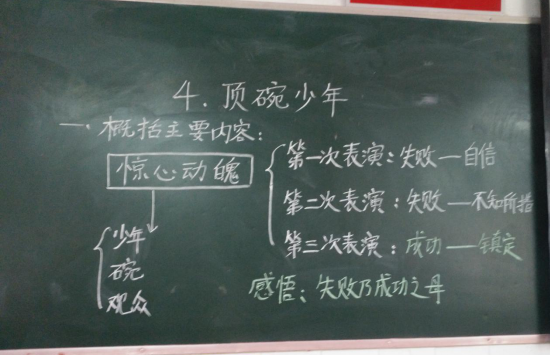 4. 顶碗少年
一、概括主要内容:
惊心动魄
第一次表演:失败—自信
第二次表演:失败—不知所措
第三次表演:成功—镇定
少年
碗
观众
感悟:失败乃成功之母